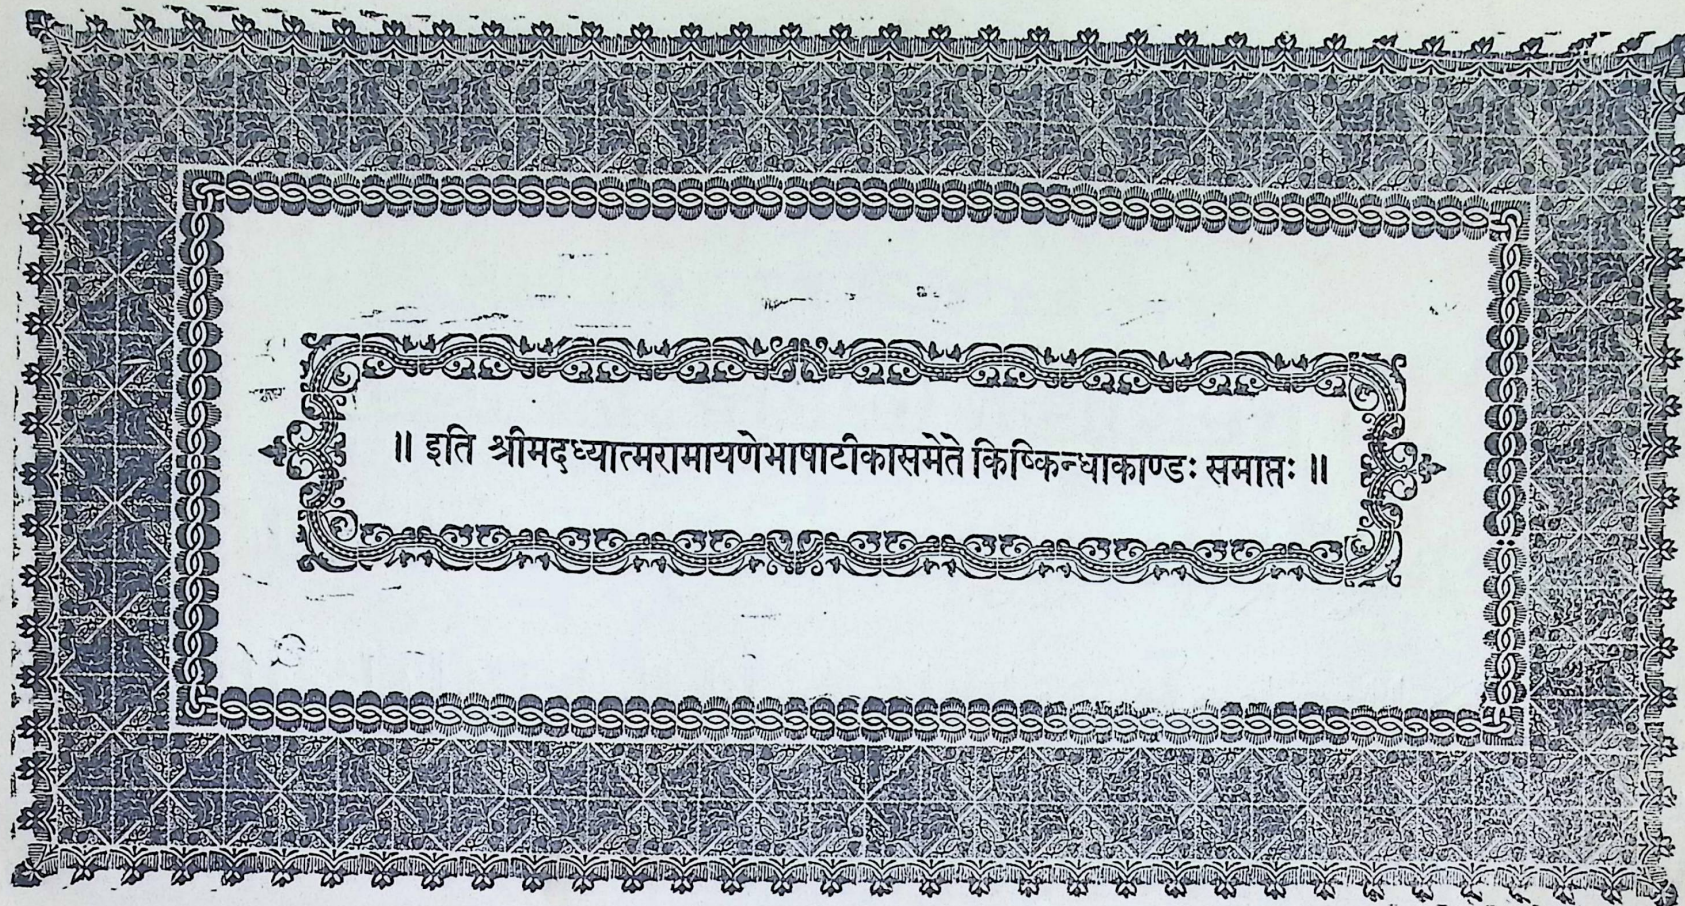 ॥ इति श्रीमदध्यात्मरामायणेभाषाटीकासमेते किष्किन्धाकाण्डः समाप्तः ॥